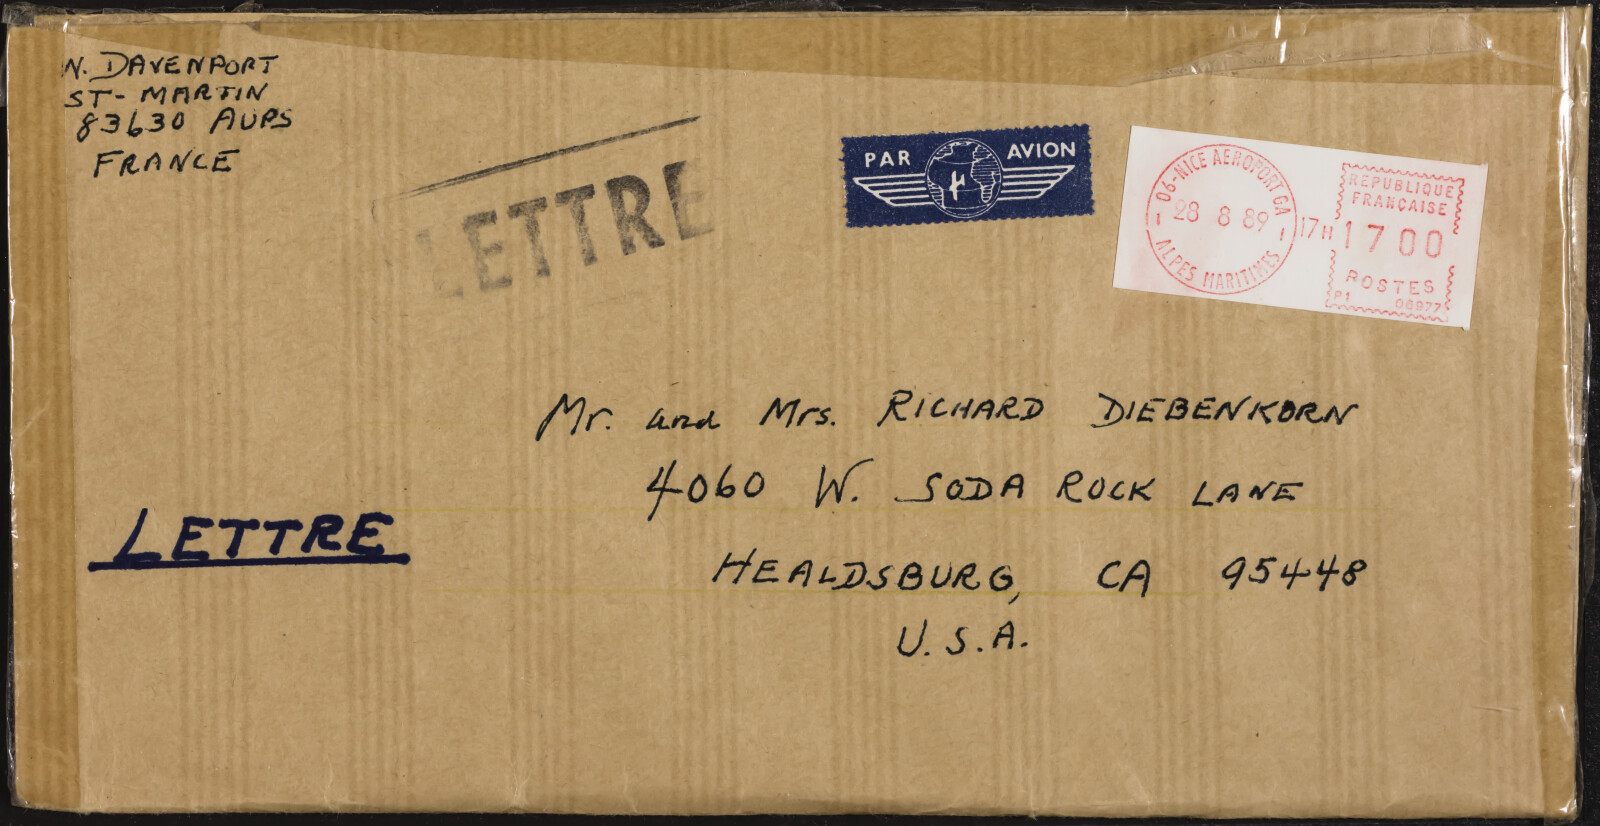 N. DAVENPORT
ST- MARTIN
83630 AUPS
FRANCE
LETTRE
PAR AVION
06-NICE AEROPORT CA
28 8 89
ALPES MARITIMES
17H
REPUBLIQUE
FRANÇAISE
1700
POSTES
P1 06977
Mr. and Mrs. RICHARD DIEBENKORN
4060 W. SODA ROCK LANE
LETTRE
HEALDSBURG, CA 95448
U.S.A.